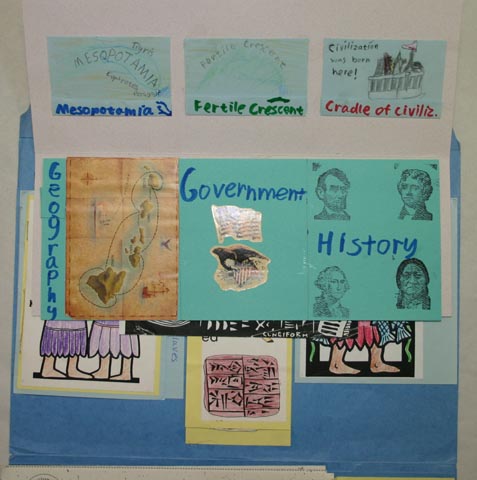 MESOPOTAMIA
Tigris
Euphrates
Mesopotamia
Fertile Crescent
Fertile Crescent
Civilization
was born
here!
Cradle of civiliz.
Geography
Government
History
CUNEIFORM